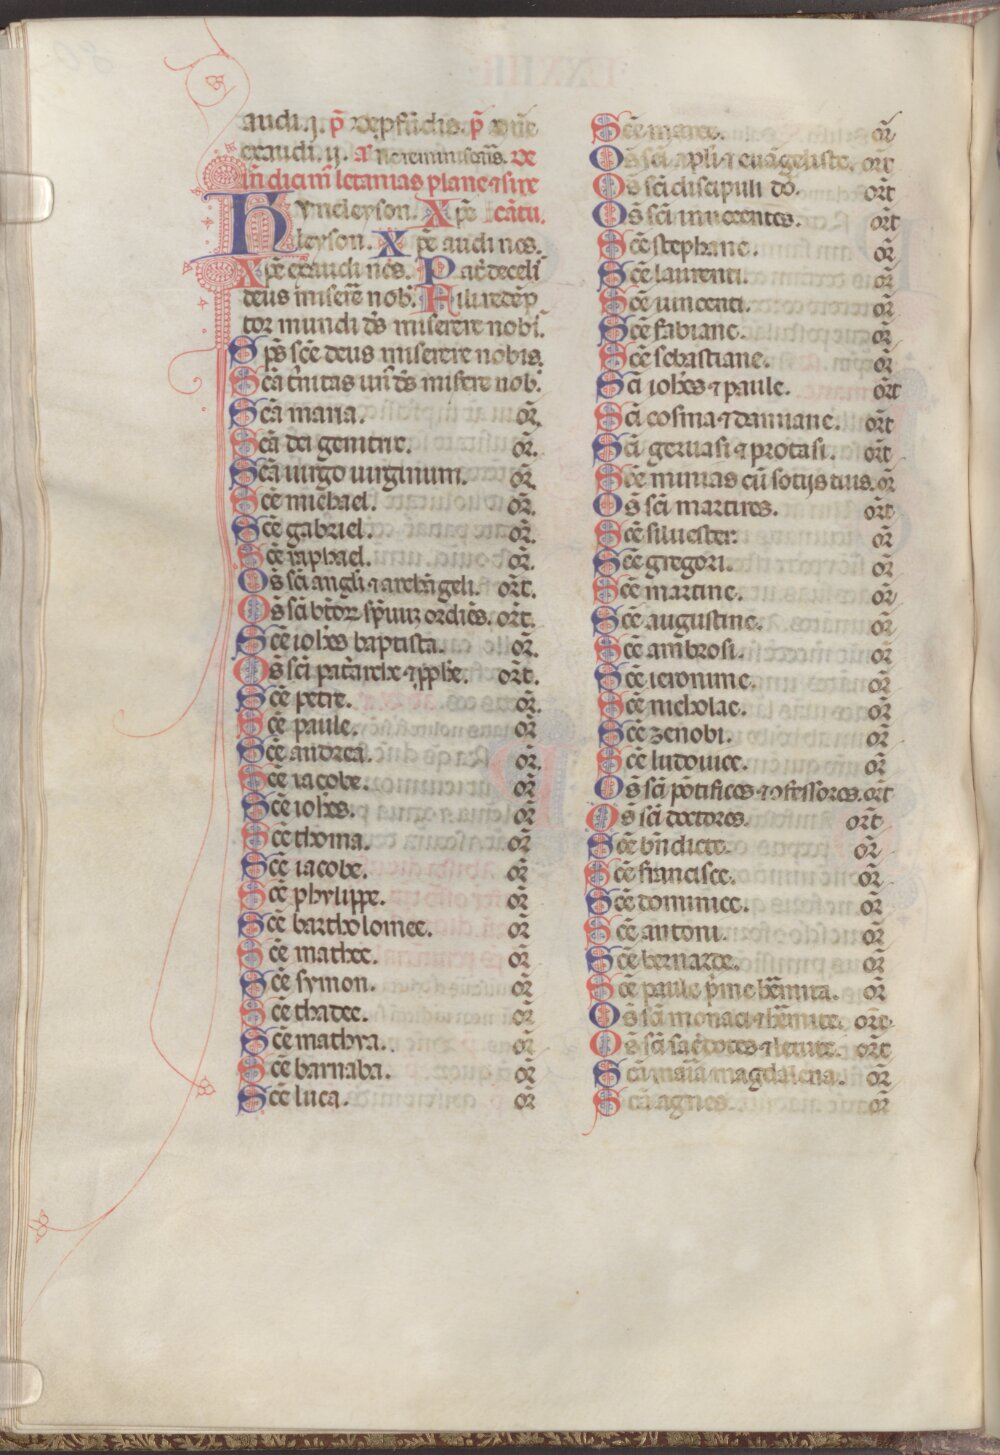 audi. j. p̄ Dep̄fūdis. p̄ Dn̄e
exaudi. ij. Añ Ne reminiscaris. De
īn dicūnt letanias plane ⁊ sīne
Kyrieleyson. Xpē cātu.
leyson. Xpē audi nos.
Xpē exaudi nos. Pat̄ de celi
deus miserē nob̄. Fili redēp
tor mundi ds̄ miserere nobī.
Sps̄ scē deus miserere nobis.
Scā t̄nitas un̄ ds̄ misere nob̄.
Scā maria. or̄.
Scā dei genitrix. or̄.
Scā uirgo uirginum. or̄.
Scē michael. or̄.
Scē gabriel. or̄.
Scē raphael. or̄.
Os̄ scī angl̄i ⁊ archn̄geli. ort̄.
Os̄ scī bt̄oꝝ sp̄uuꝫ ordīēs. ort̄.
Scē ioh̄es baptista. or̄.
Os̄ scī pat̄arche ⁊ ꝓph̄e. ort̄.
Scē petre. or̄.
Scē paule. or̄
Scē andrea. or̄.
Scē iacobe. or̄
Scē ioh̄es. or̄
Scē thoma. or̄
Scē iacobe. or̄
Scē phylippe. or̄
Scē bartholomee. or̄
Scē mathee. or̄
Scē symon. or̄
Scē thadee. or̄
Scē mathya. or̄
Scē barnaba. or̄
Scē luca. or̄
Scē marce. or̄
Os̄ scī apl̄i ⁊ euāgeliste. ort̄
Os̄ scī discipuli dō. ort̄
Os̄ scī innocentes. ort̄
Scē stephane. or̄
Scē laurenti. or̄
Scē uincenti. or̄
Scē fabiane. or̄
Scē sebastiane. or̄
Scī ioh̄es ⁊ paule. ort̄
Scī cosma ⁊ damiane. ort̄
Scī geruasi ⁊ protasi. ort̄
Scē minias cū sotijs tuis. or̄
Os̄ scī martires. ort̄
Scē siluester. or̄
Scē gregori. or̄
Scē martine. or̄
Scē augustine. or̄
Scē ambrosi. or̄
Scē ieronime. or̄
Scē nicholae. or̄
Scē zenobi. or̄
Scē ludouice. or̄
Os̄ scī pōtifices ⁊ ꝯfessores. ort̄
Os̄ scī doctores. ort̄
Scē bn̄dicte. or̄
Scē francisce. or̄
Scē dominice. or̄
Scē antoni. or̄
Scē bernarde. or̄
Scē paule p̄me hēmita. or̄
Os̄ scī monaci ⁊ hēmite. ort̄
Os̄ scī sac̄dotes ⁊ leuite. ort̄
Scā maīa magdalena. or̄
Scā agnes. or̄